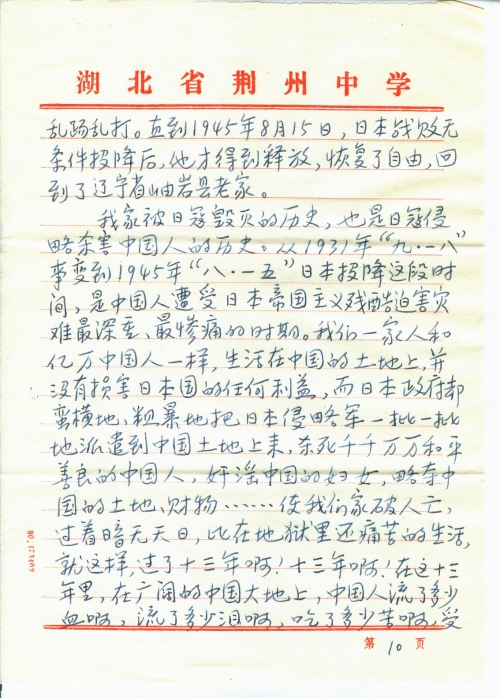 湖北省荆州中学
乱踢乱打。直到1945年8月15日，日本战败无
条件投降后，他才得到释放，恢复了自由，回
到了辽宁省岫岩县老家。
我家被日寇毁灭的历史，也是日寇侵
略杀害中国人的历史。从1931年“九·一八”
事变到1945年“八·一五”日本投降这段时
间，是中国人遭受日本帝国主义残酷迫害灾
难最深重、最惨痛的时期。我们一家人和
亿万中国人一样，生活在中国的土地上，并
没有损害日本国的任何利益，而日本政府却
蛮横地、粗暴地把日本侵略军一批一批
地派遣到中国土地上来，杀死千千万万和平
善良的中国人，奸淫中国的妇女，略夺中
国的土地、财物………使我们家破人亡，
过着暗无天日，比在地狱里还痛苦的生活，
就这样，过了十三年啊！十三年啊！在这十三
年里，在广阔的中国大地上，中国人流了多少
血啊，流了多少泪啊，吃了多少苦啊，受
90.173402
第 10 页